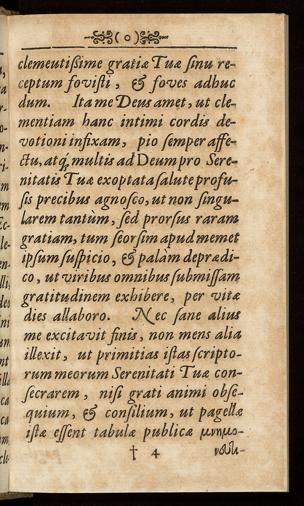 ( o )
clementißime gratiæ Tuæ ſinu re-
ceptum foviſti, & foves adhuc
dum. Ita me Deus amet, ut cle-
mentiam hanc intimi cordis de-
votioni infixam, pio ſemper affe-
ctu, atq; multis ad Deum pro Sere-
nitatis Tuæ exoptata ſalute profu-
ſis precibus agnoſco, ut non ſingu-
larem tantùm, ſed prorſus raram
gratiam, tum ſeorſim apud memet
ipſum ſuſpicio, & palàm deprædi-
co, ut viribus omnibus ſubmiſſam
gratitudinem exhibere, per vitæ
dies allaboro. Nec ſane alius
me excitavit finis, non mens alia
illexit, ut primitias iſtas ſcripto-
rum meorum Serenitati Tuæ con-
ſecrarem, niſi grati animi obſe-
quium, & conſilium, ut pagellæ
iſtæ eſſent tabulæ publicæ μνημο-
† 4